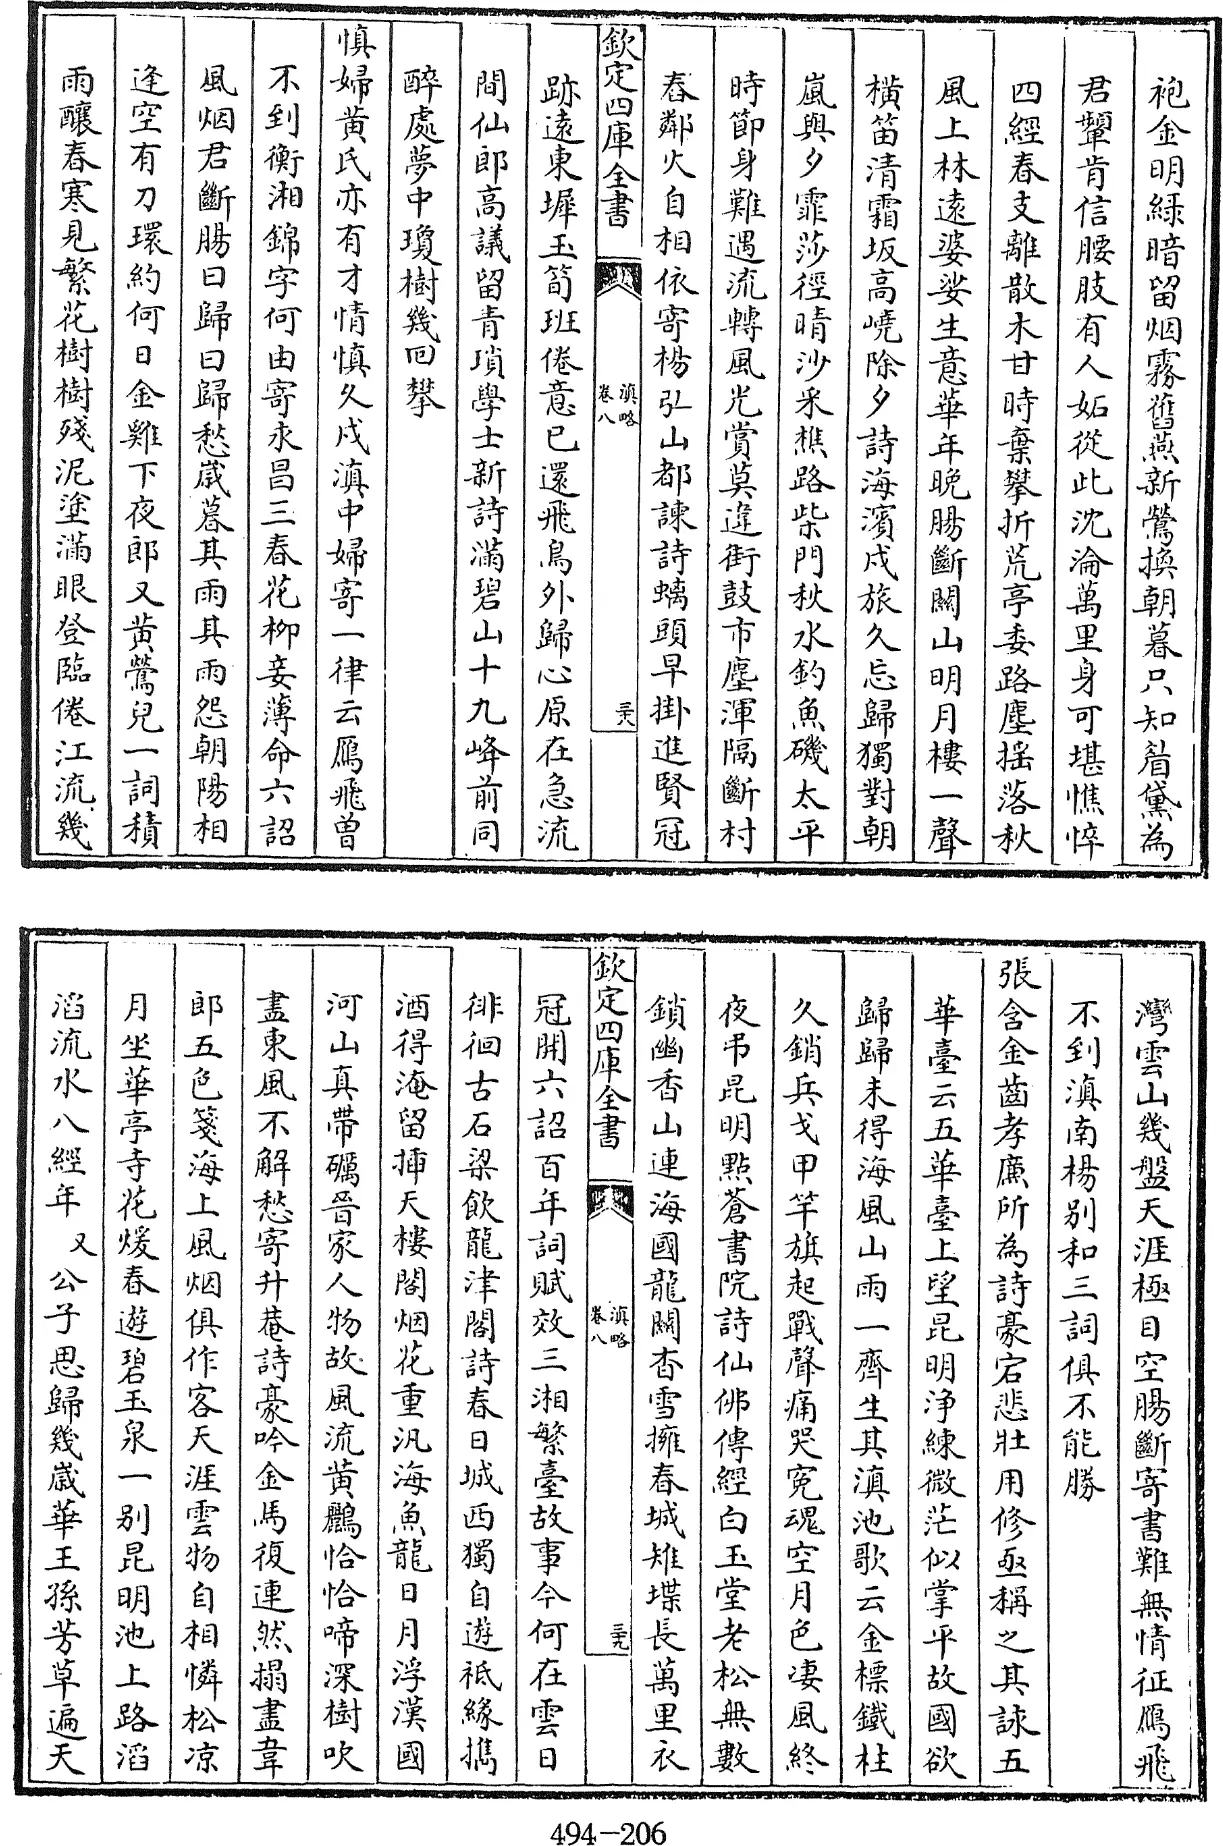 袍金明緑暗留烟霧舊燕新鶯換朝暮只知眉黛為
君顰肯信腰肢有人妬從此沈淪萬里身可堪憔悴
四經春支離散木甘時棄攀折荒亭委路塵揺落秋
風上林遠婆娑生意華年晚腸斷關山明月樓一聲
横笛清霜坂高嶢除夕詩海濱戍旅久忘歸獨對朝
嵐與夕霏莎徑晴沙采樵路柴門秋水釣魚磯太平
時節身難遇流轉風光賞莫違街鼓市塵渾隔斷村
舂鄰火自相依寄楊弘山都諫詩螭頭早掛進賢冠
欽定四庫全書
滇略
卷八
三六
跡遠東墀玉筍班倦意已還飛鳥外歸心原在急流
間仙郎高議留青瑣學士新詩滿碧山十九峰前同
醉處夢中瓊樹幾回攀
慎婦黄氏亦有才情慎久戍滇中婦寄一律云鴈飛曽
不到衡湘錦字何由寄永昌三春花柳妾薄命六詔
風烟君斷腸曰歸曰歸愁歲暮其雨其雨怨朝陽相
逢空有刀環約何日金雞下夜郎又黄鶯兒一詞積
雨釀春寒見繁花樹樹殘泥塗滿眼登臨倦江流幾
灣雲山幾盤天涯極目空腸斷寄書難無情征鴈飛
不到滇南楊别和三詞俱不能勝
張含金齒孝廉所為詩豪宕悲壯用修亟稱之其詠五
華臺云五華臺上望昆明浄練微茫似掌平故國欲
歸歸未得海風山雨一齊生其滇池歌云金標鐵柱
久銷兵戈甲竿旗起戰聲痛哭寃魂空月色凄風終
夜弔昆明點蒼書院詩仙佛傳經白玉堂老松無數
鎖幽香山連海國龍關杳雪擁春城雉堞長萬里衣
欽定四庫全書
滇略
卷八
三九
冠開六詔百年詞賦效三湘繁臺故事今何在雲日
徘徊古石梁飲龍津閣詩春日城西獨自遊祗緣擕
酒得淹留挿天樓閣烟花重汎海魚龍日月浮漢國
河山真帶礪晉家人物故風流黄鸝恰恰啼深樹吹
盡東風不解愁寄升菴詩豪吟金馬復連然搨盡韋
郎五色箋海上風烟俱作客天涯雲物自相憐松凉
月坐華亭寺花煖春遊碧玉泉一别昆明池上路滔
滔流水八經年 又公子思歸幾歲華王孫芳草遍天
494-206